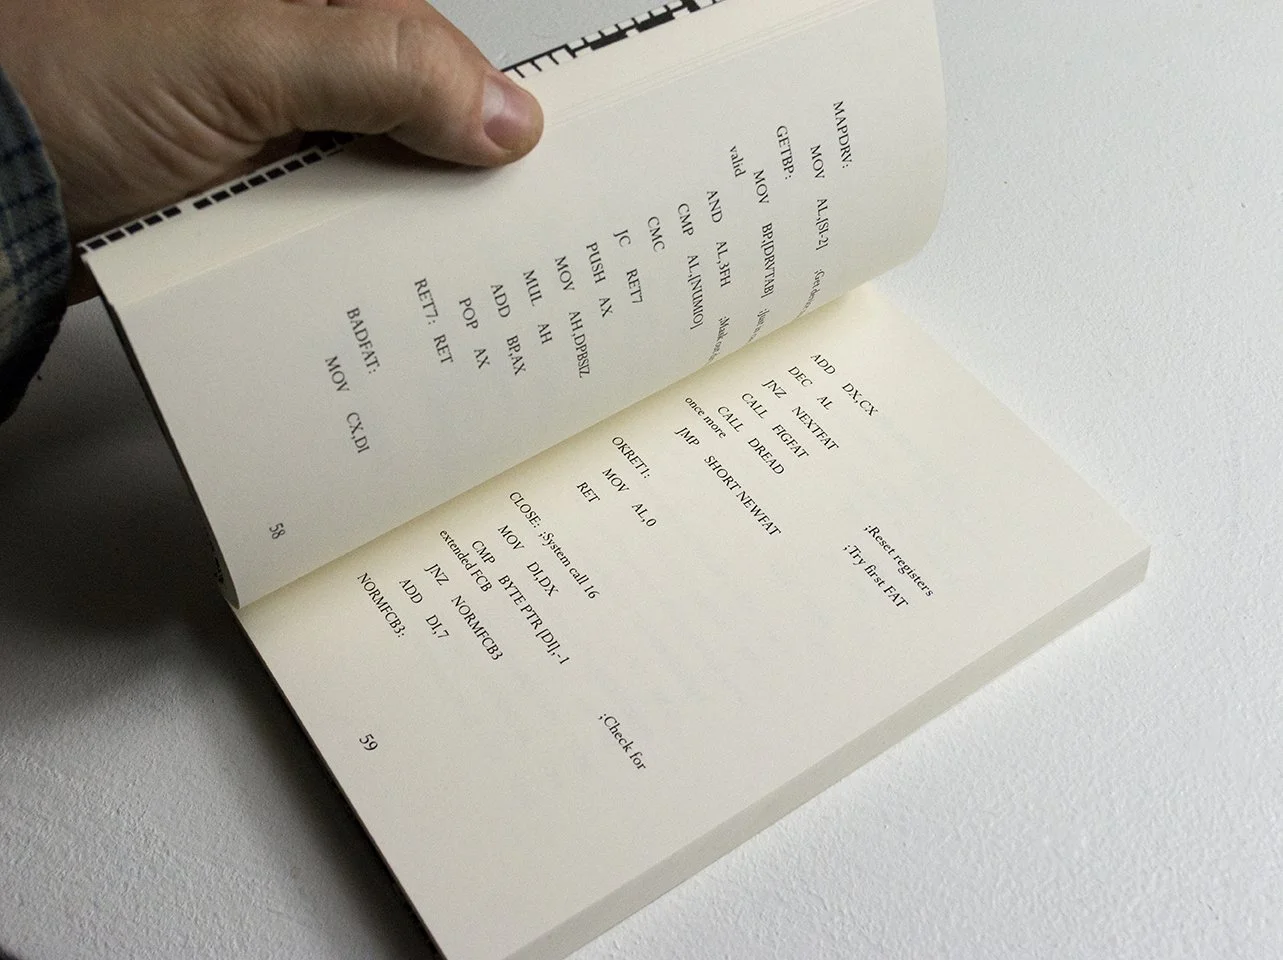 MAPDRV:
MOV AL,[SI-2] ;Get
GETBP:
MOV BP,[DRVTAB] ;Just in
valid
AND AL,3FH ;Mask out
CMP AL,[NUMIO]
CMC
JC RET7
PUSH AX
MOV AH,DPBSIZ
MUL AH
ADD BP,AX
POP AX
RET7: RET
BADFAT:
MOV CX,DI
58
ADD DX,CX
DEC AL
JNZ NEXTFAT
CALL FIGFAT ;Reset registers
CALL DREAD ;Try first FAT
once more
JMP SHORT NEWFAT
OKRET1:
MOV AL,0
RET
CLOSE: ;System call 16
MOV DI,DX
CMP BYTE PTR [DI],-1 ;Check for
extended FCB
JNZ NORMFCB3
ADD DI,7
NORMFCB3:
59